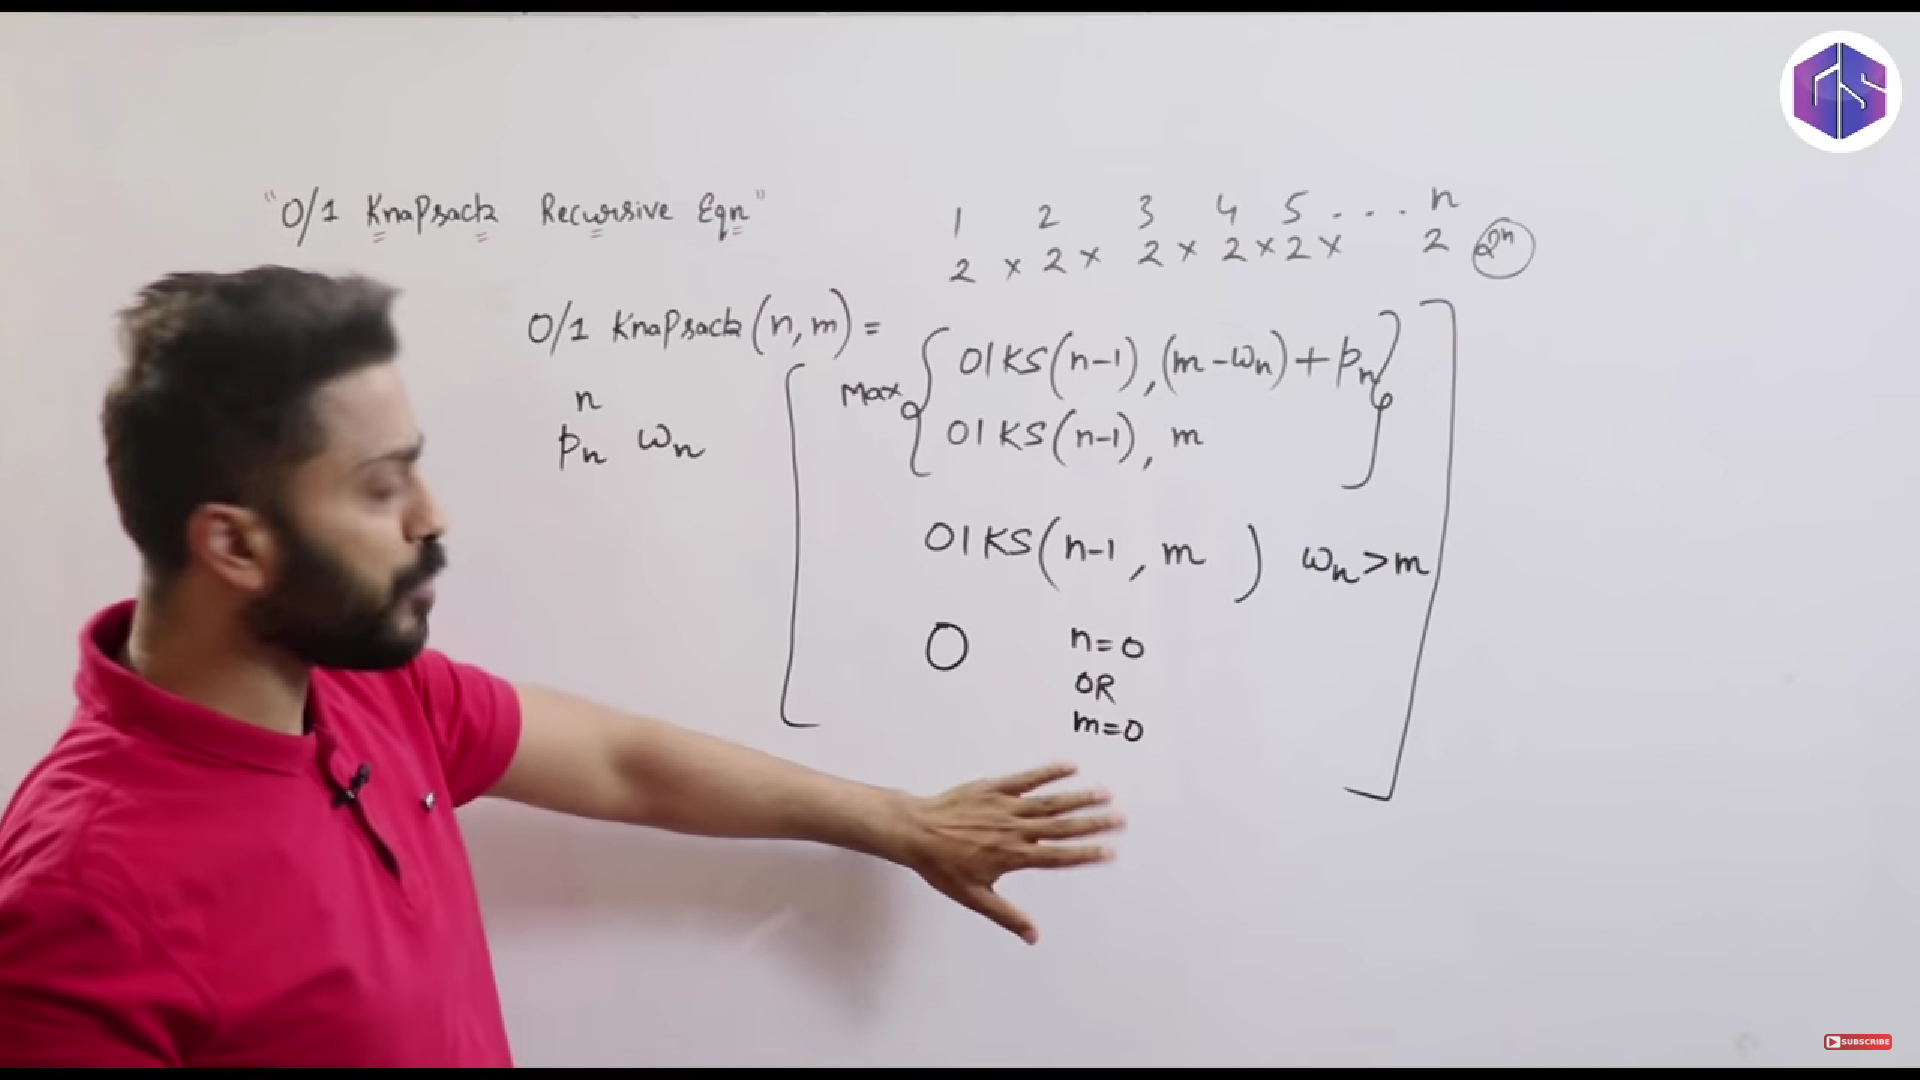 "0/1 KnaPsack Recursive Eqn"
1 2 3 4 5 . . . . n
2 × 2 × 2 × 2 × 2 × 2 2ⁿ
0/1 KnaPsack (n, m) =
n
pₙ ωₙ
Max { 01KS(n-1), (m-ωₙ) + pₙ
01KS(n-1), m }
01KS(n-1, m ) ωₙ > m
0 n=0
OR
m=0
GS
SUBSCRIBE